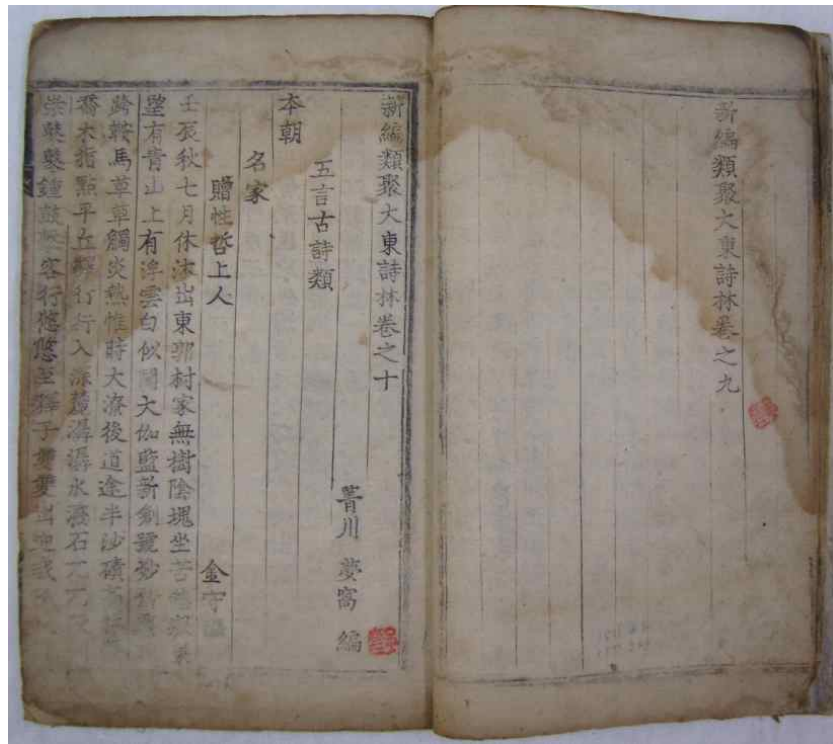 新編類聚大東詩林卷之九
新編類聚大東詩林卷之十
菁川 夢窩 編
五言古詩類
本朝
名家
贈性哲上人 金守
壬辰秋七月休沐出東郭村家無樹陰塊坐苦
望有青山上有浮雲白似聞大伽藍新創號妙
跨鞍馬草草觸炎熱惟時大潦後道途半沙磧
喬木指點平丘 行行入深麓潺潺水 石
鐘鼓 客行悠悠至釋子雙雙出迎我